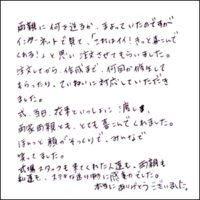 両親に何を送るか、まよっていたのですが
インターネットで見て、「これはイイ！きっと喜こんで
くれる！」と思い注文させてもらいました。
注文してから、作成まで、何回か修正して
もらったり、ていねいに対応していただき
ました。
式、当日、花束といっしょに渡し、
両家両親とも、とても喜こんでくれました。
ほんっと顔がそっくりで、みんなで
笑ってました。
式場スタッフも来てくれた人達も、両親も
私達も、ステキな送り物に感動でした。
本当にありがとうございました。